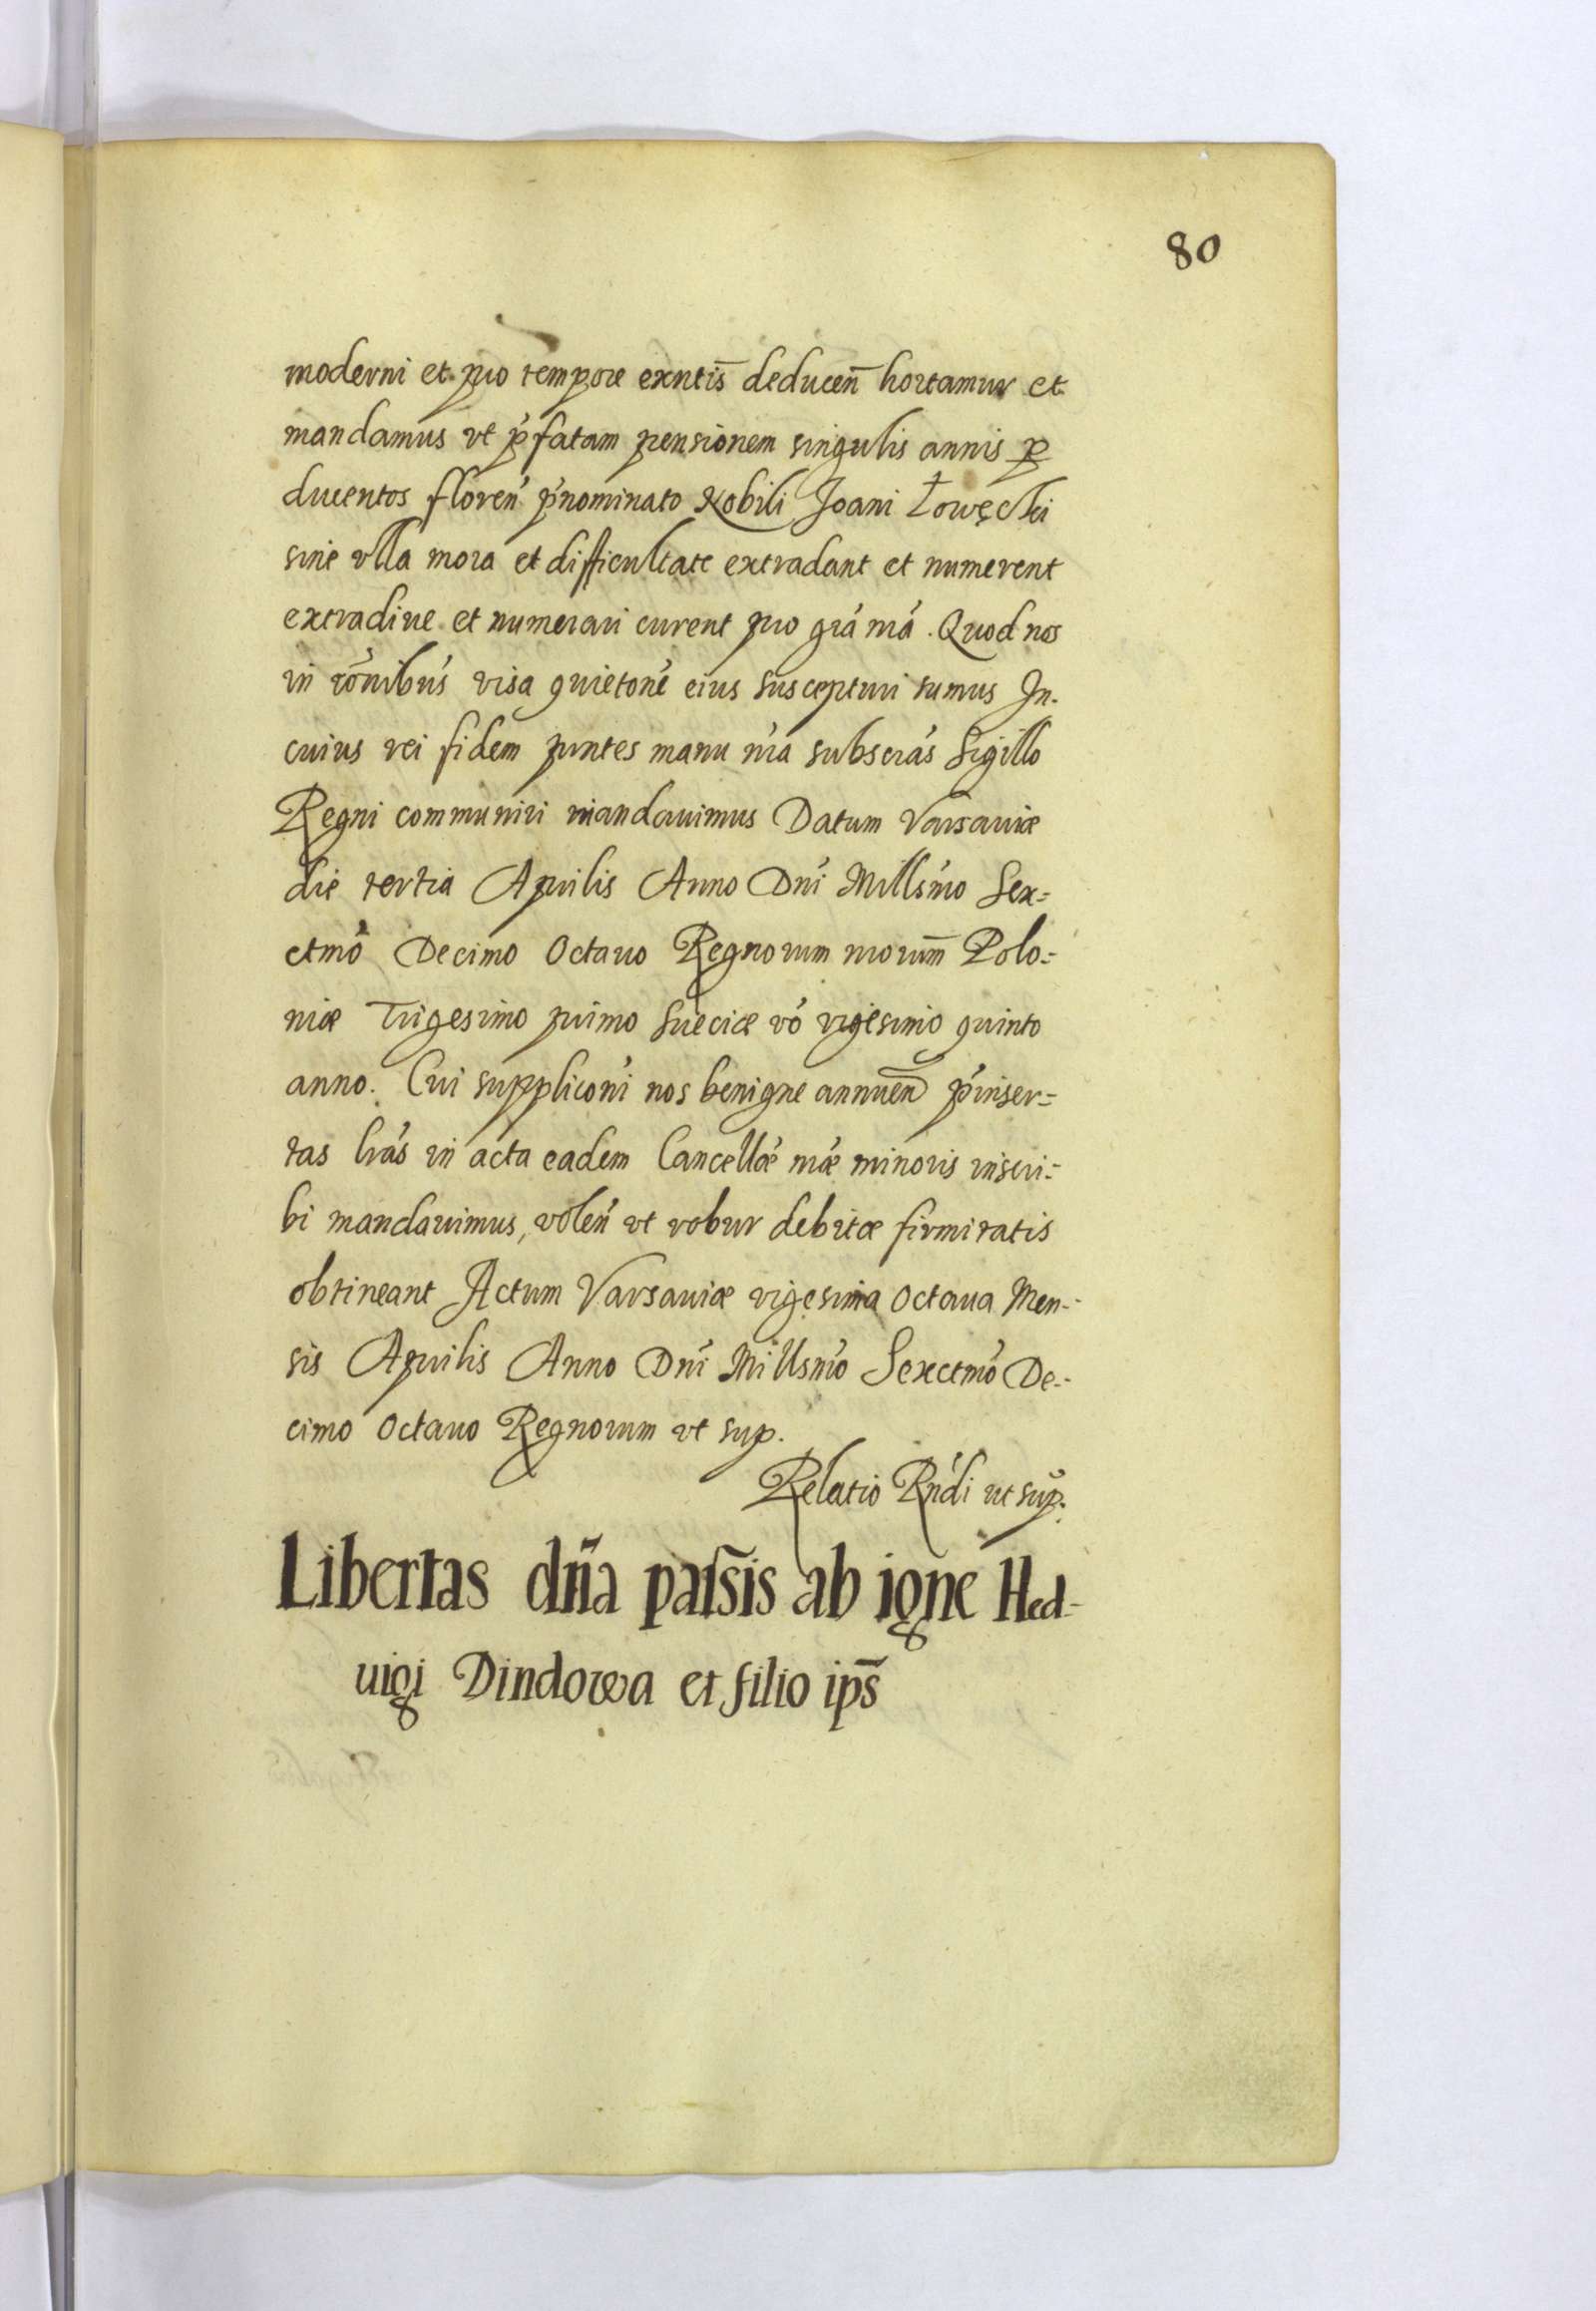 80
moderni et pro tempore exntis̄ deducen̄ hortamur et
mandamus vt ṕfatam pensionem singulis annis ꝑ
ducentos floreń ṕnominato Nobili Joani Łowęcki
sine vlla mora et difficultate extradant et numerent
extradive et numerari curent pro grá nrá. Quod nos
in rónibús visa quietoné eius suscepturi sumus In-
cuius rei fidem prntes manu nŕa subscrás Sigillo
Regni communiri mandauimus Datum Varsauiæ
die tertia Aprilis Anno Dní Millsḿo Sex=
ctmó Decimo Octauo Regnorum nrorum̄ Polo=
niæ Trigesimo primo Sueciæ vó vigesimo quinto
anno. Cui supplicońi nos benigne annuen̄ ṕinser=
tas lrás in acta eadem Cancellǽ nrǽ minoris inscri=
bi mandauimus, voleń vt robur debitæ firmitatis
obtineant Actum Varsauiæ vigesima Octaua Men-
sis Aprilis Anno Dní Millsmó Sexctmó De-
cimo Octauo Regnorum vt sup.
Relatio Rńdi ut sup.
Libertas dn̄a pass̄is ab igne Hed-
uigi Dindowa et filio ips̄